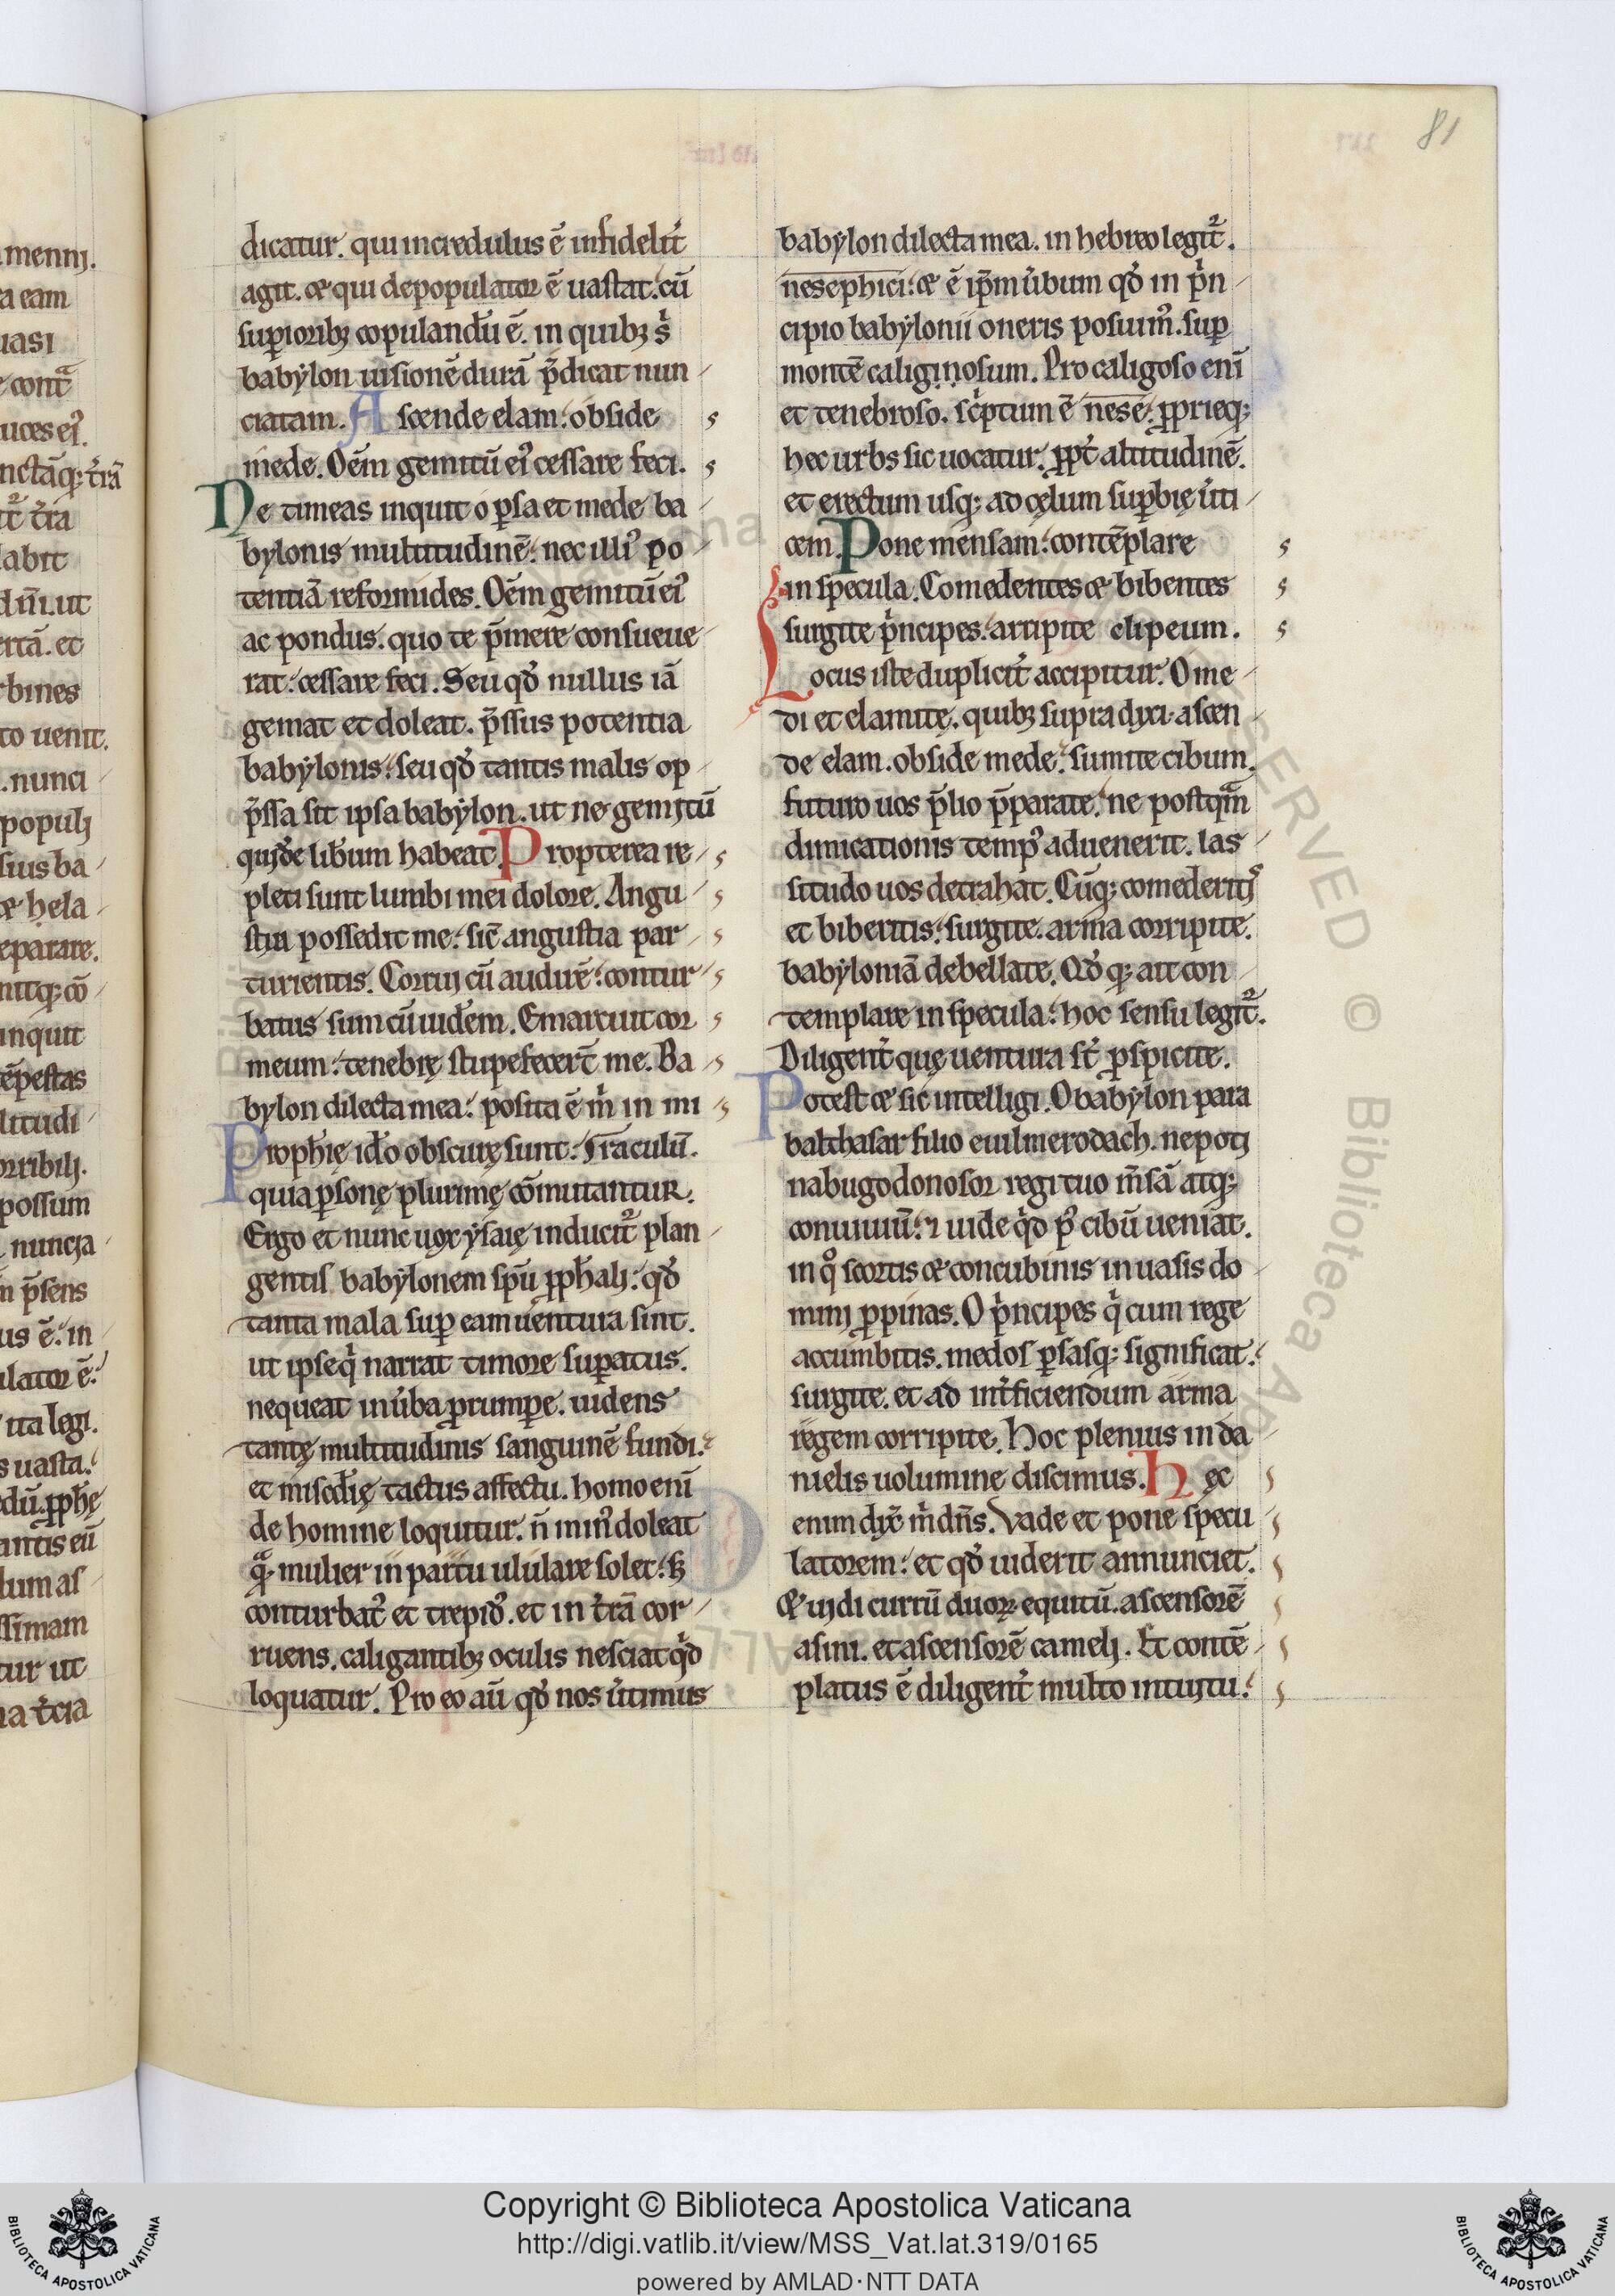 81
dicatur. qui incredulus ē infidelit̾
agit. & qui depopulator ē uastat. cū
suꝑiorib; copulandū ē. in quib; s̾
babẏlon uisionē durā p̄dicat nun
ciatam. Ascende elam. obside
mede. Oēm gemitū ei᾽ cessare feci.
Ne timeas inquit o ꝑsa et mede ba
bylonis multitudinē. nec illi᾽ po
tentiā reformides. Oēm gemitū ei᾽
ac pondus. quo te p̄mere consueue
rat. cessare feci. Seu qđ nullus iā
gemat et doleat. p̄ssus potentia
babẏlonis. seu qđ tantis malis op
p̄ssa sit ipsa babẏlon. ut ne gemitū
quidē liberum habeat. Propterea re
pleti sunt lumbi mei dolore. Angu
stia possedit me. sic̄ angustia par
turientis. Corrui cū audirē. contur
batus sum cū uiderem. Emarcuit cor
meum. tenebrę stupefecer̄t me. Ba
bylon dilecta mea. posita ē m̾ in mi
Prophię iđo obscurę sunt. raculū.
quia ꝑsonę plurimę cōmutantur.
Ergo et nunc uox ẏsaię inducit᾽ plan
gentis babẏlonem spū ꝓphali. qđ
tanta mala suꝑ eam uentura sint.
ut ipse q̾ narrat timore suꝑatus.
nequeat in u̾ba ꝓrumpe. uidens
tantę multitudinis sanguinē fundi.
et miscđię tactus affectu. homo enī
de homine loquitur. ñ min᾽ doleat
q̄. mulier in partu ululare solet. sꝫ
conturbat᾽ et trepid᾽. et in t̾rā cor
ruens. caligantib; oculis nesciat q̾d
loquatur. Pro eo aū qđ nos u̾timus
babẏlon dilecta mea. in hebreo legit᾽.
nesephici. & ē ip̄m u̾bum qđ in p̾n
cipio babẏlonii oneris posuim᾽. suꝑ
montē caliginosum. Pro caligoso enī
et tenebroso. sc̾ptum ē nese. ꝓprieq;
hec urbs sic uocatur. ꝓpt̾ altitudinē.
et erectum usq; ad cęlum suꝑbię u̾ti
cem. Pone mensam. contēplare
in specula. Comedentes & bibentes
surgite p̾ncipes. arripite clipeum.
Locus iste duplicit̾ accipitur. O me
di et elamitę. quib; supra dixi. ascen
de elam. obside mede. sumite cibum.
futuro uos p̄lio p̄parate. ne postqm̄
dimicationis temp᾽ aduenerit. las
situdo uos detrahat. Cūq; comederitis
et biberitis. surgite. arma corripite.
babyloniā debellate. Qđ q; ait con
templare in specula. hoc sensu legit᾽.
Diligent̾ quę uentura st̾ ꝑspicite.
Potest & sic intelligi. O babẏlon para
balthasar filio euilmerodach. nepoti
nabugodonosor regi tuo m̄sā atq;
conuiuiū. ⁊ uide q̾d p᾽ cibū ueniat.
in qͦ scortis & concubinis in uasis do
mini ꝓpinas. O p̾ncipes q̾ cum rege
accumbitis. medos ꝑsasq; significat.
surgite. et ad int̾ficiendum arma
regem corripite. Hoc plenius in da
nielis uolumine discimus. Hęc
enim dix̄ m̾ dn̄s. Vade et pone specu
latorem. et qđ uiderit annunciet.
& uidi currū duoꝝ equitū. ascensorē
asini. et ascensorē cameli. Et contē
platus ē diligent̾ multo intuitu.
Copyright © Biblioteca Apostolica Vaticana
http://digi.vatlib.it/view/MSS_Vat.lat.319/0165
powered by AMLAD·NTT DATA